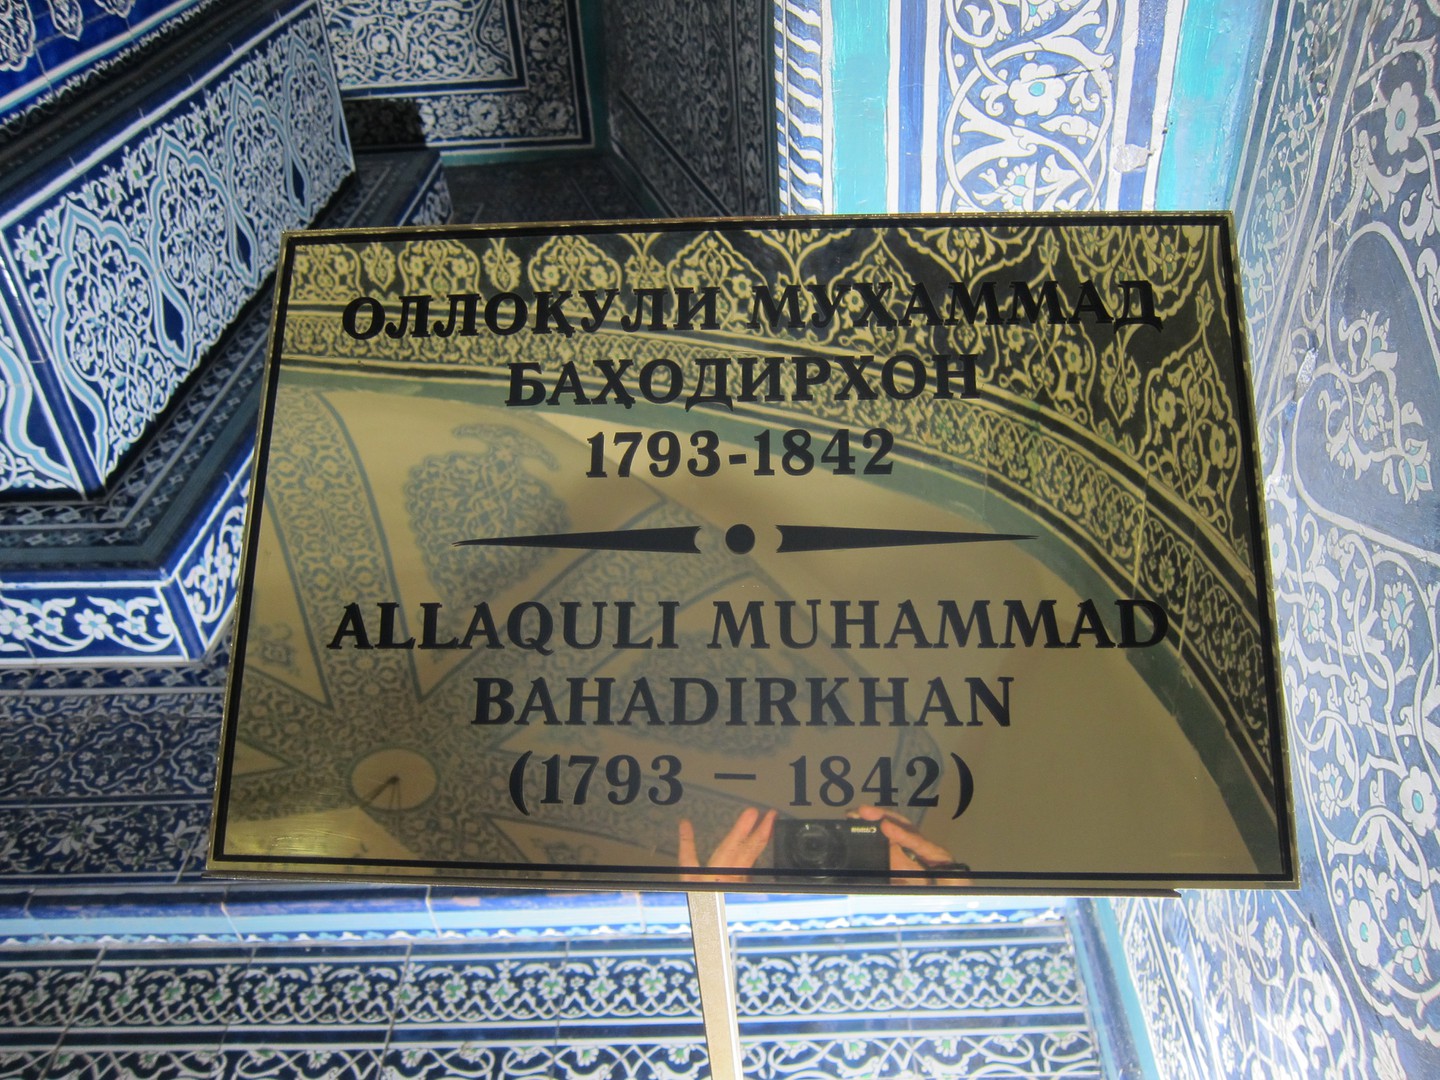 ОЛЛОҚУЛИ МУҲАММАД
БАҲОДИРХОН
1793-1842
ALLAQULI MUHAMMAD
BAHADIRKHAN
(1793 – 1842)
Canon